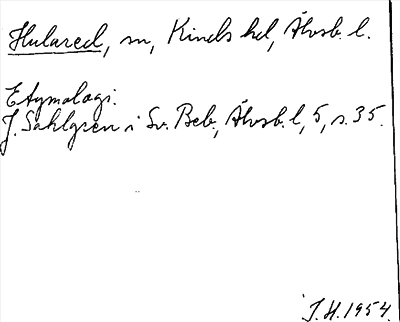 Hulared, sn, Kinds hd, Älvsb. l.
Etymologi.
J. Sahlgren i Sv. Beb., Älvsb. l, 5, s. 35.
J. H. 1954.